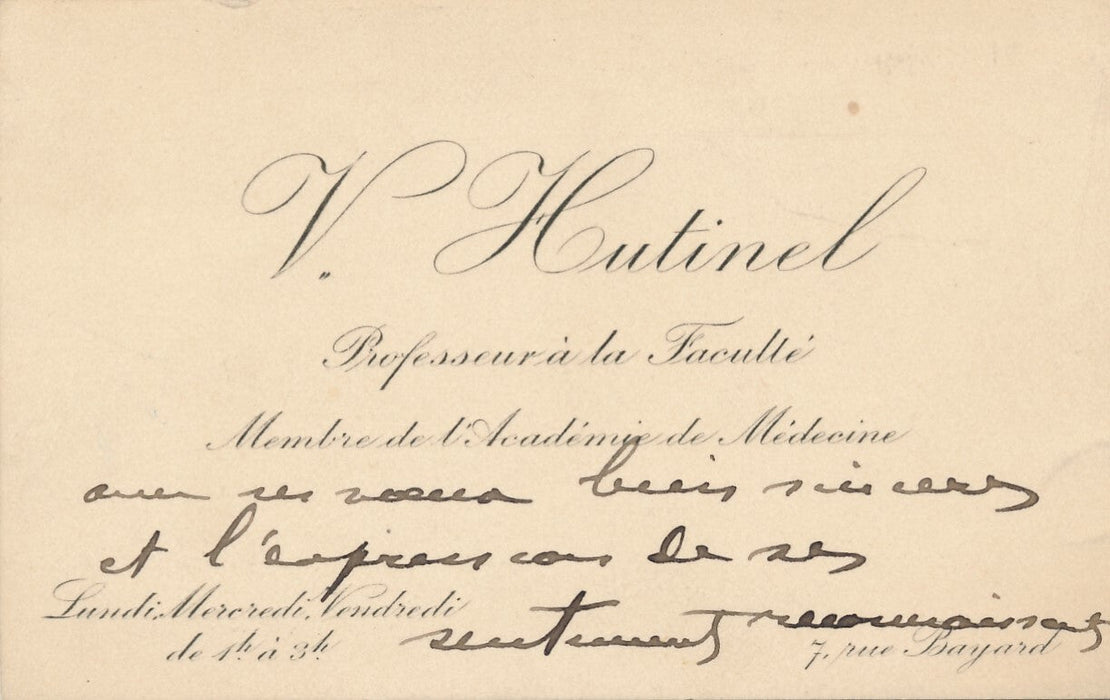 V. Hutinel
Professeur à la Faculté
Membre de l'Académie de Médecine
avec ses vœux bien sincères
et l'expression de ses
sentiments reconnaissants
Lundi, Mercredi, Vendredi
de 1h à 3h
7, rue Bayard